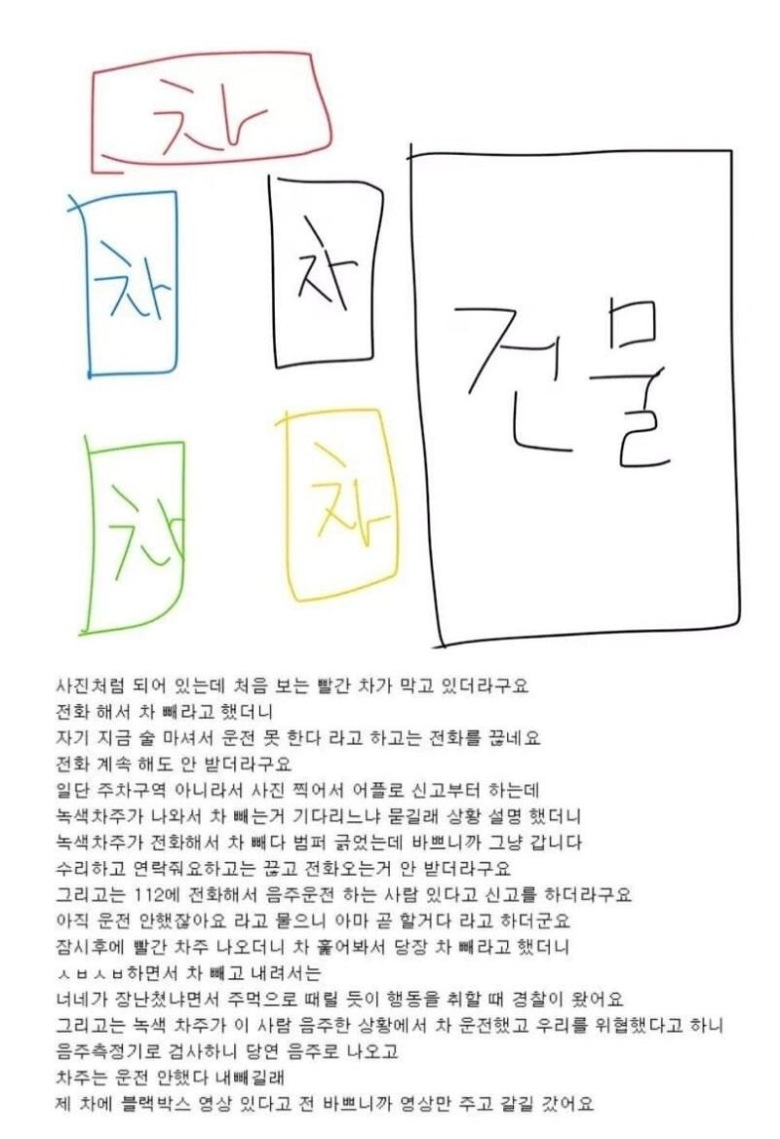 차
차
차
건물
차
차
사진처럼 되어 있는데 처음 보는 빨간 차가 막고 있더라구요
전화 해서 차 빼라고 했더니
자기 지금 술 마셔서 운전 못 한다 라고 하고는 전화를 끊네요
전화 계속 해도 안 받더라구요
일단 주차구역 아니라서 사진 찍어서 어플로 신고부터 하는데
녹색차주가 나와서 차 빼는거 기다리느냐 묻길래 상황 설명 했더니
녹색차주가 전화해서 차 빼다 범퍼 긁었는데 바쁘니까 그냥 갑니다
수리하고 연락줘요하고는 끊고 전화오는거 안 받더라구요
그리고는 112에 전화해서 음주운전 하는 사람 있다고 신고를 하더라구요
아직 운전 안했잖아요 라고 물으니 아마 곧 할거다 라고 하더군요
잠시후에 빨간 차주 나오더니 차 훑어봐서 당장 차 빼라고 했더니
ㅅㅂㅅㅂ하면서 차 빼고 내려서는
너네가 장난쳤냐면서 주먹으로 때릴 듯이 행동을 취할 때 경찰이 왔어요
그리고는 녹색 차주가 이 사람 음주한 상황에서 차 운전했고 우리를 위협했다고 하니
음주측정기로 검사하니 당연 음주로 나오고
차주는 운전 안했다 내빼길래
제 차에 블랙박스 영상 있다고 전 바쁘니까 영상만 주고 갈길 갔어요